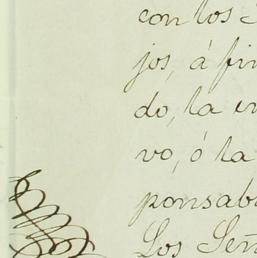 con los
jos, á fin
do, la en
vo, ó la
ponsab
Los Señ